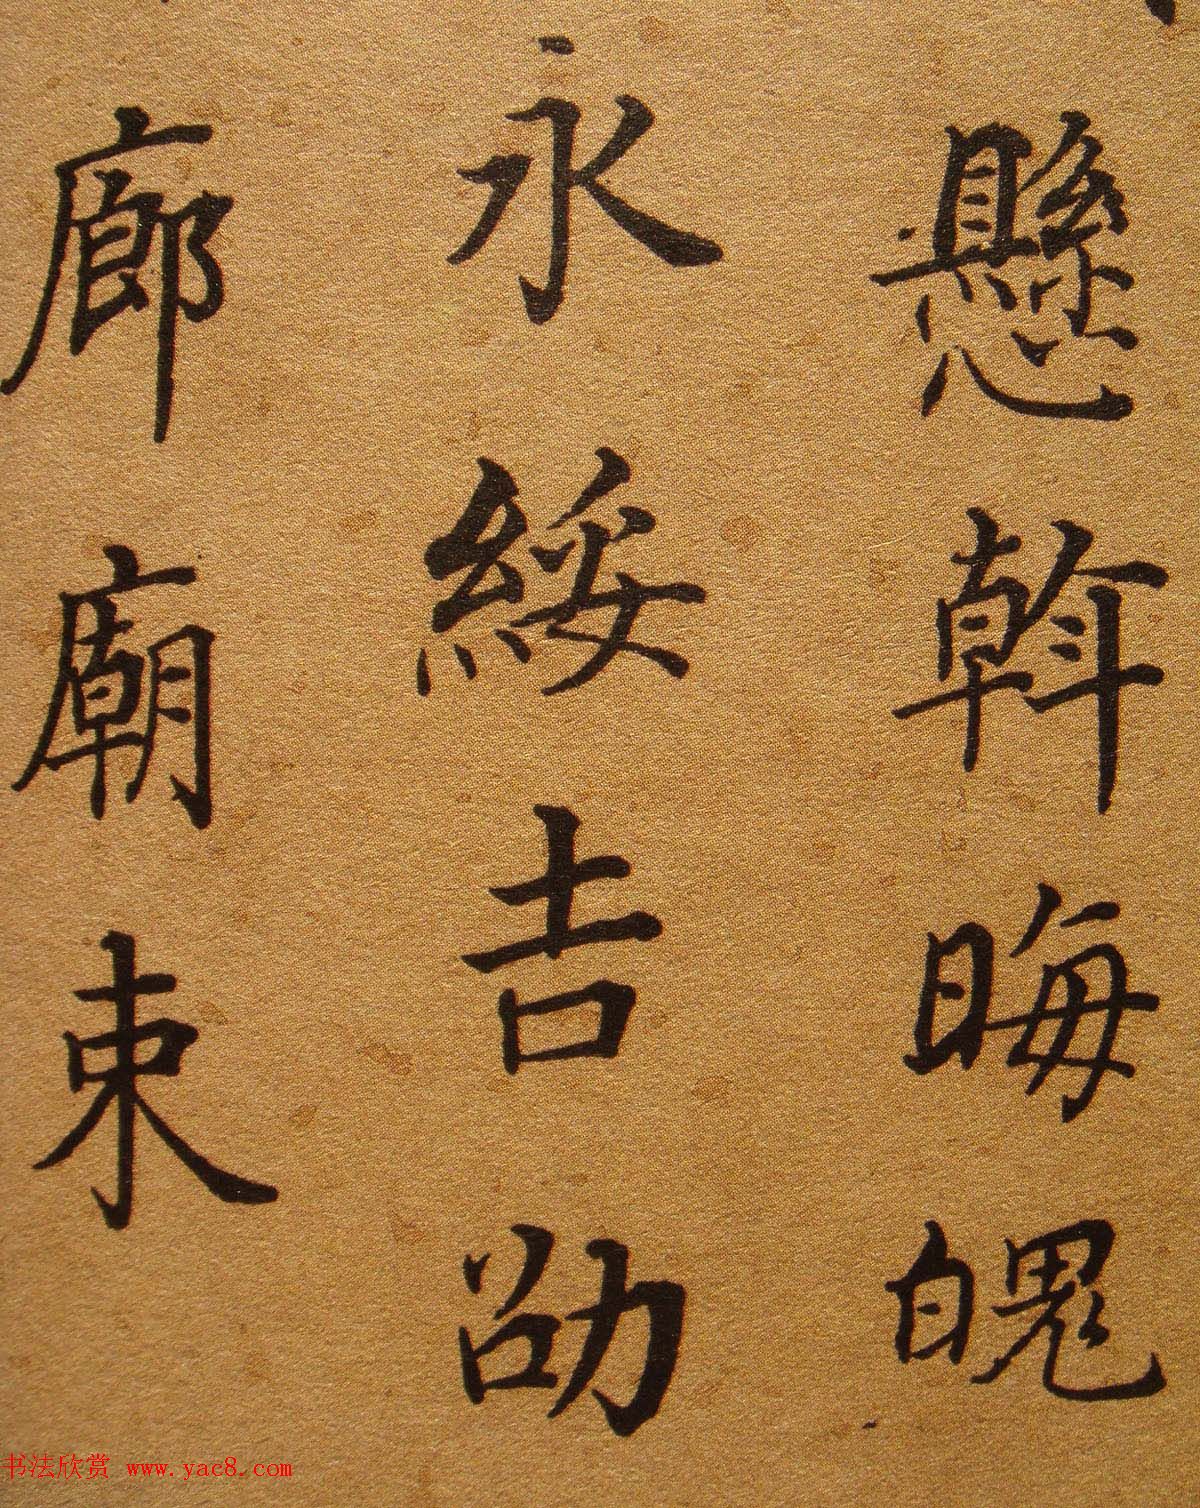 懸斡晦魄
永綏吉劭
廊廟束
书法欣赏 www.yac8.com